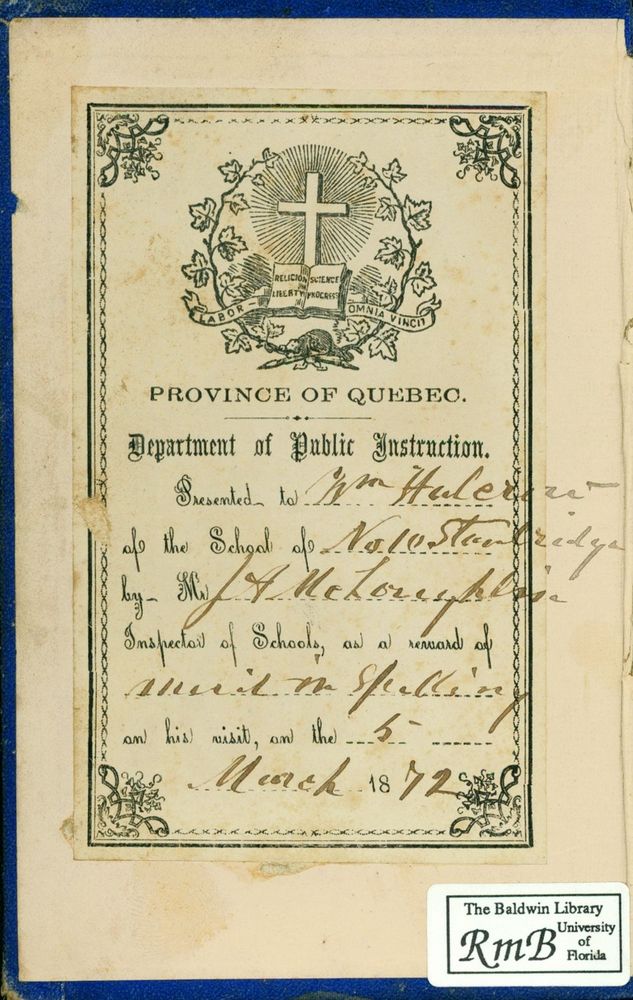 RELIGION SCIENCE
LIBERTY PROGRESS
LABOR OMNIA VINCIT
PROVINCE OF QUEBEC.
Department of Public Instruction.
Presented to Wm
of the School of No 10 Stanbridge
by Mr J A McLoughlin
Inspector of Schools, as a reward of
merit in Spelling
on his visit, on the 5
March 1872
The Baldwin Library
RmB University
of
Florida